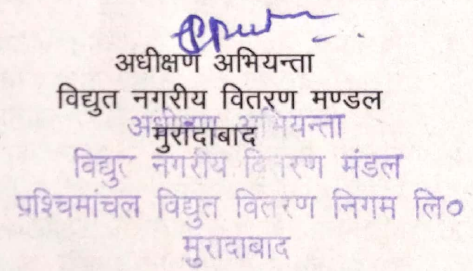 अधीक्षण अभियन्ता
विद्युत नगरीय वितरण मण्डल
मुरादाबाद
अधीक्षण अभियन्ता
विद्युत नगरीय वितरण मंडल
प्रश्चिमांचल विद्युत वितरण निगम लि०
मुरादाबाद